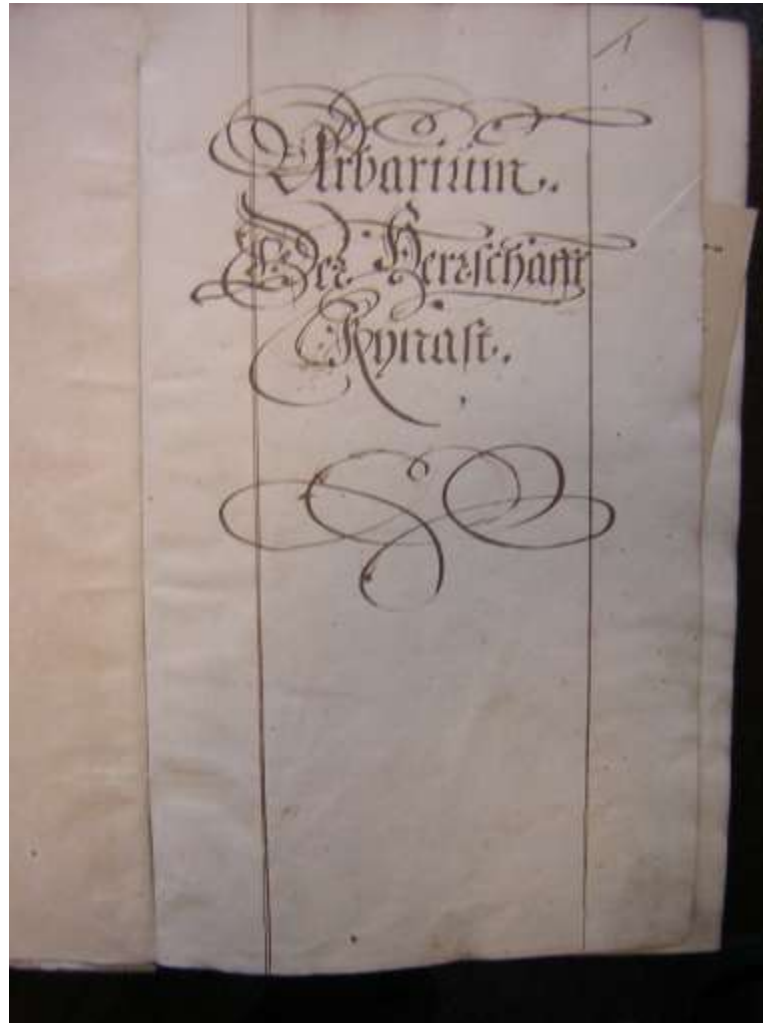 1
Urbarium.
Der Herrschafft
Kynast.